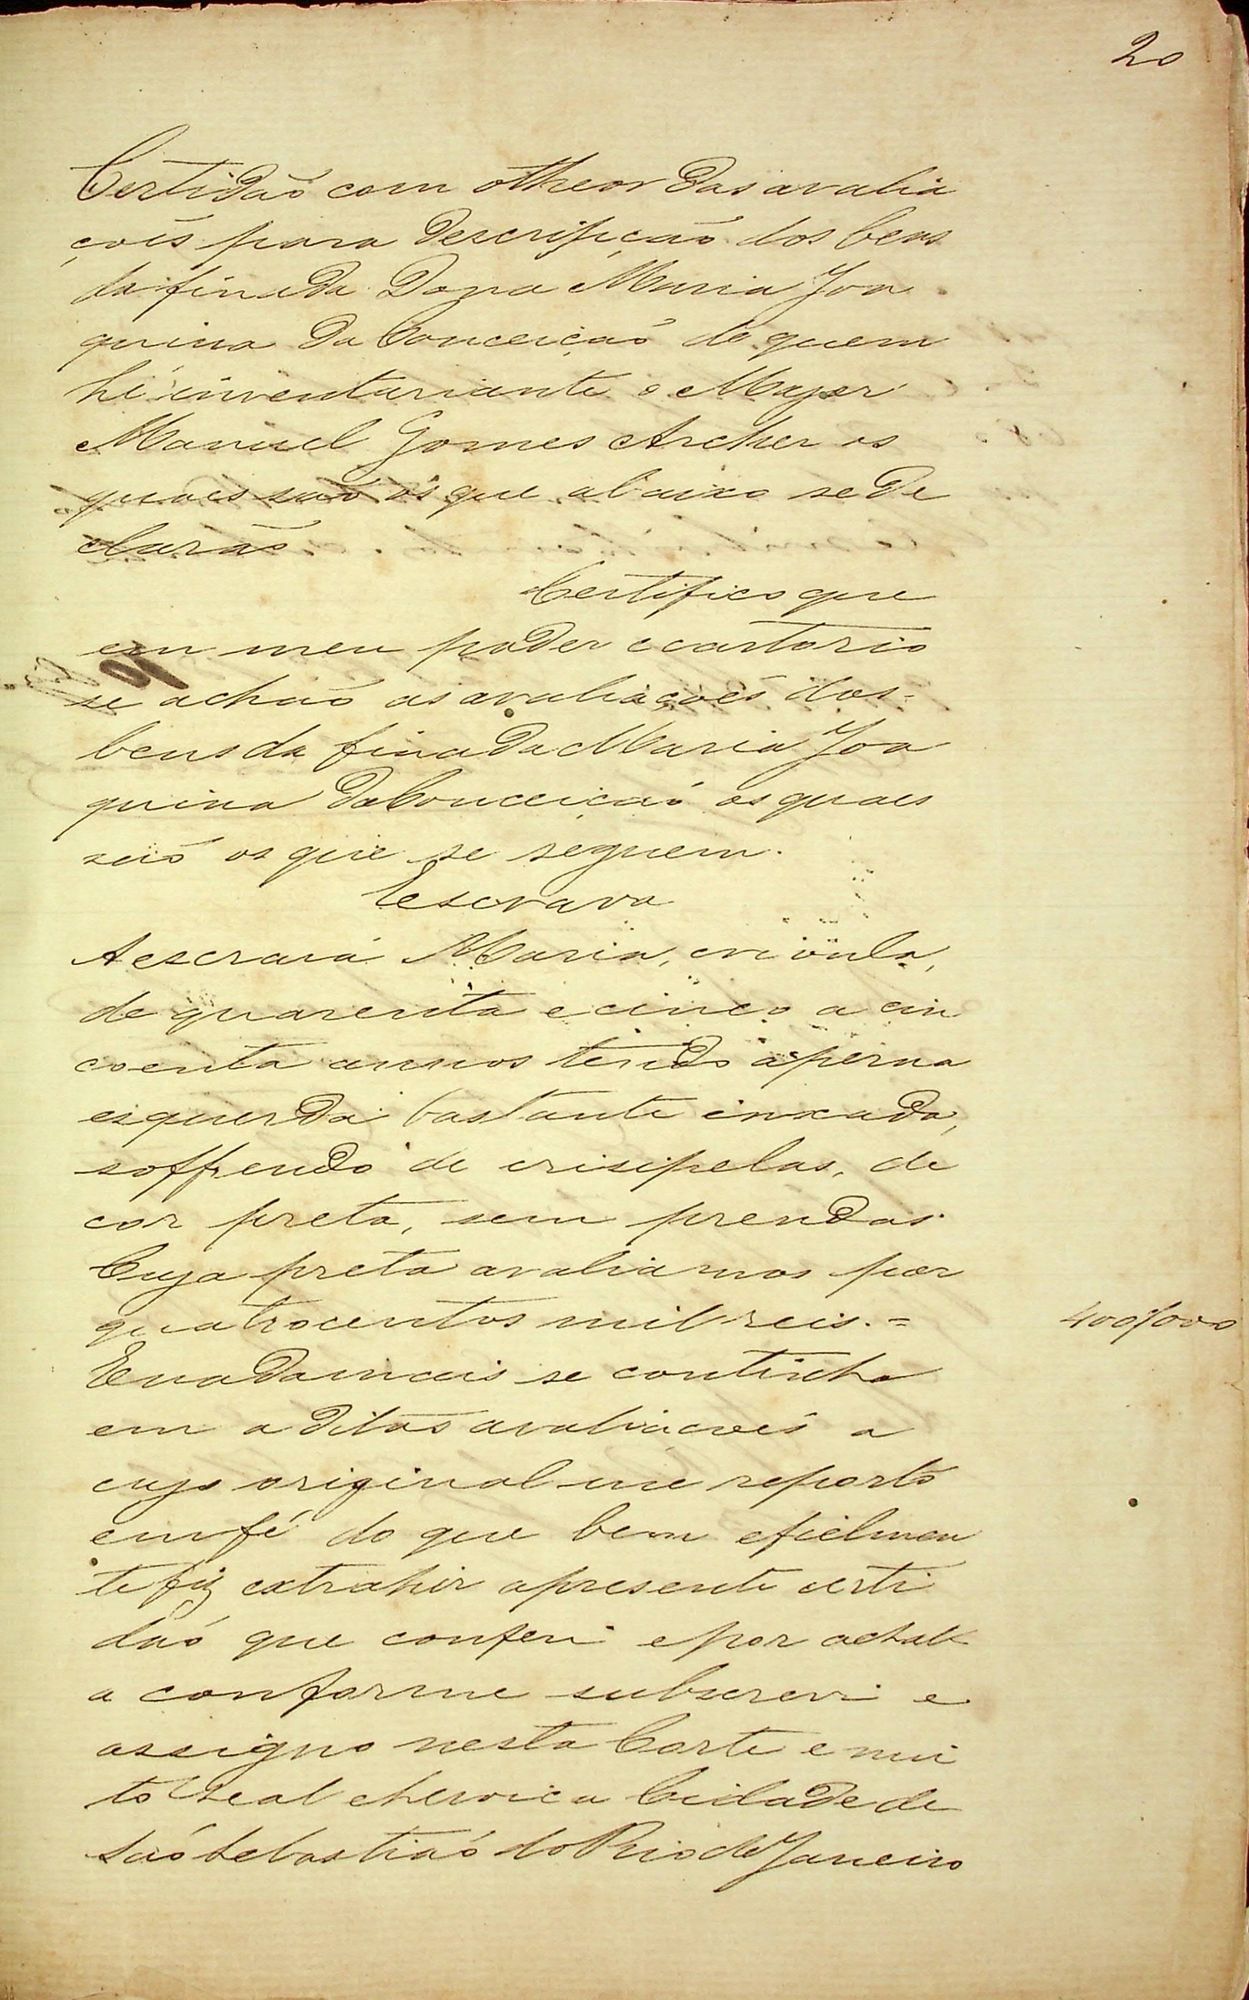 20
Certidaõ com otheor das avalia
çoẽs para descripçaõ dos bens
da finada Dona Maria Joa
quina da Conceiçaõ de quem
hé inventariante o Major
Manuel Gomes Archer os
quaes saõ os que abaixo se de
claraõ
Certifico que
em meu poder e cartorio
se achaõ as avaliaçoẽs dos
bens da finada Maria Joa
quina da Conceiçaõ os quaes
saõ os que se seguem.
Escrava
A escrava Maria, crioula,
de quarenta e cinco a cin
coenta annos tendo a perna
esquerda bastante inxada,
soffrendo de erisipelas, de
cor preta, sem prendas
Cuja preta avaliamos por
quatrocentos mil reis. = 400$000
E nada mais se continha
em a ditas avaliaçoẽs a
cujo original me reporto
em fé do que bem e fielmen
te fiz extrahir a presente certi
daõ que conferi e por achal
a conforme subscrevi e
assigno nesta Corte e mui
to Leal e heroica Cidade de
Saõ Sebastiaõ do Rio de Janeiro